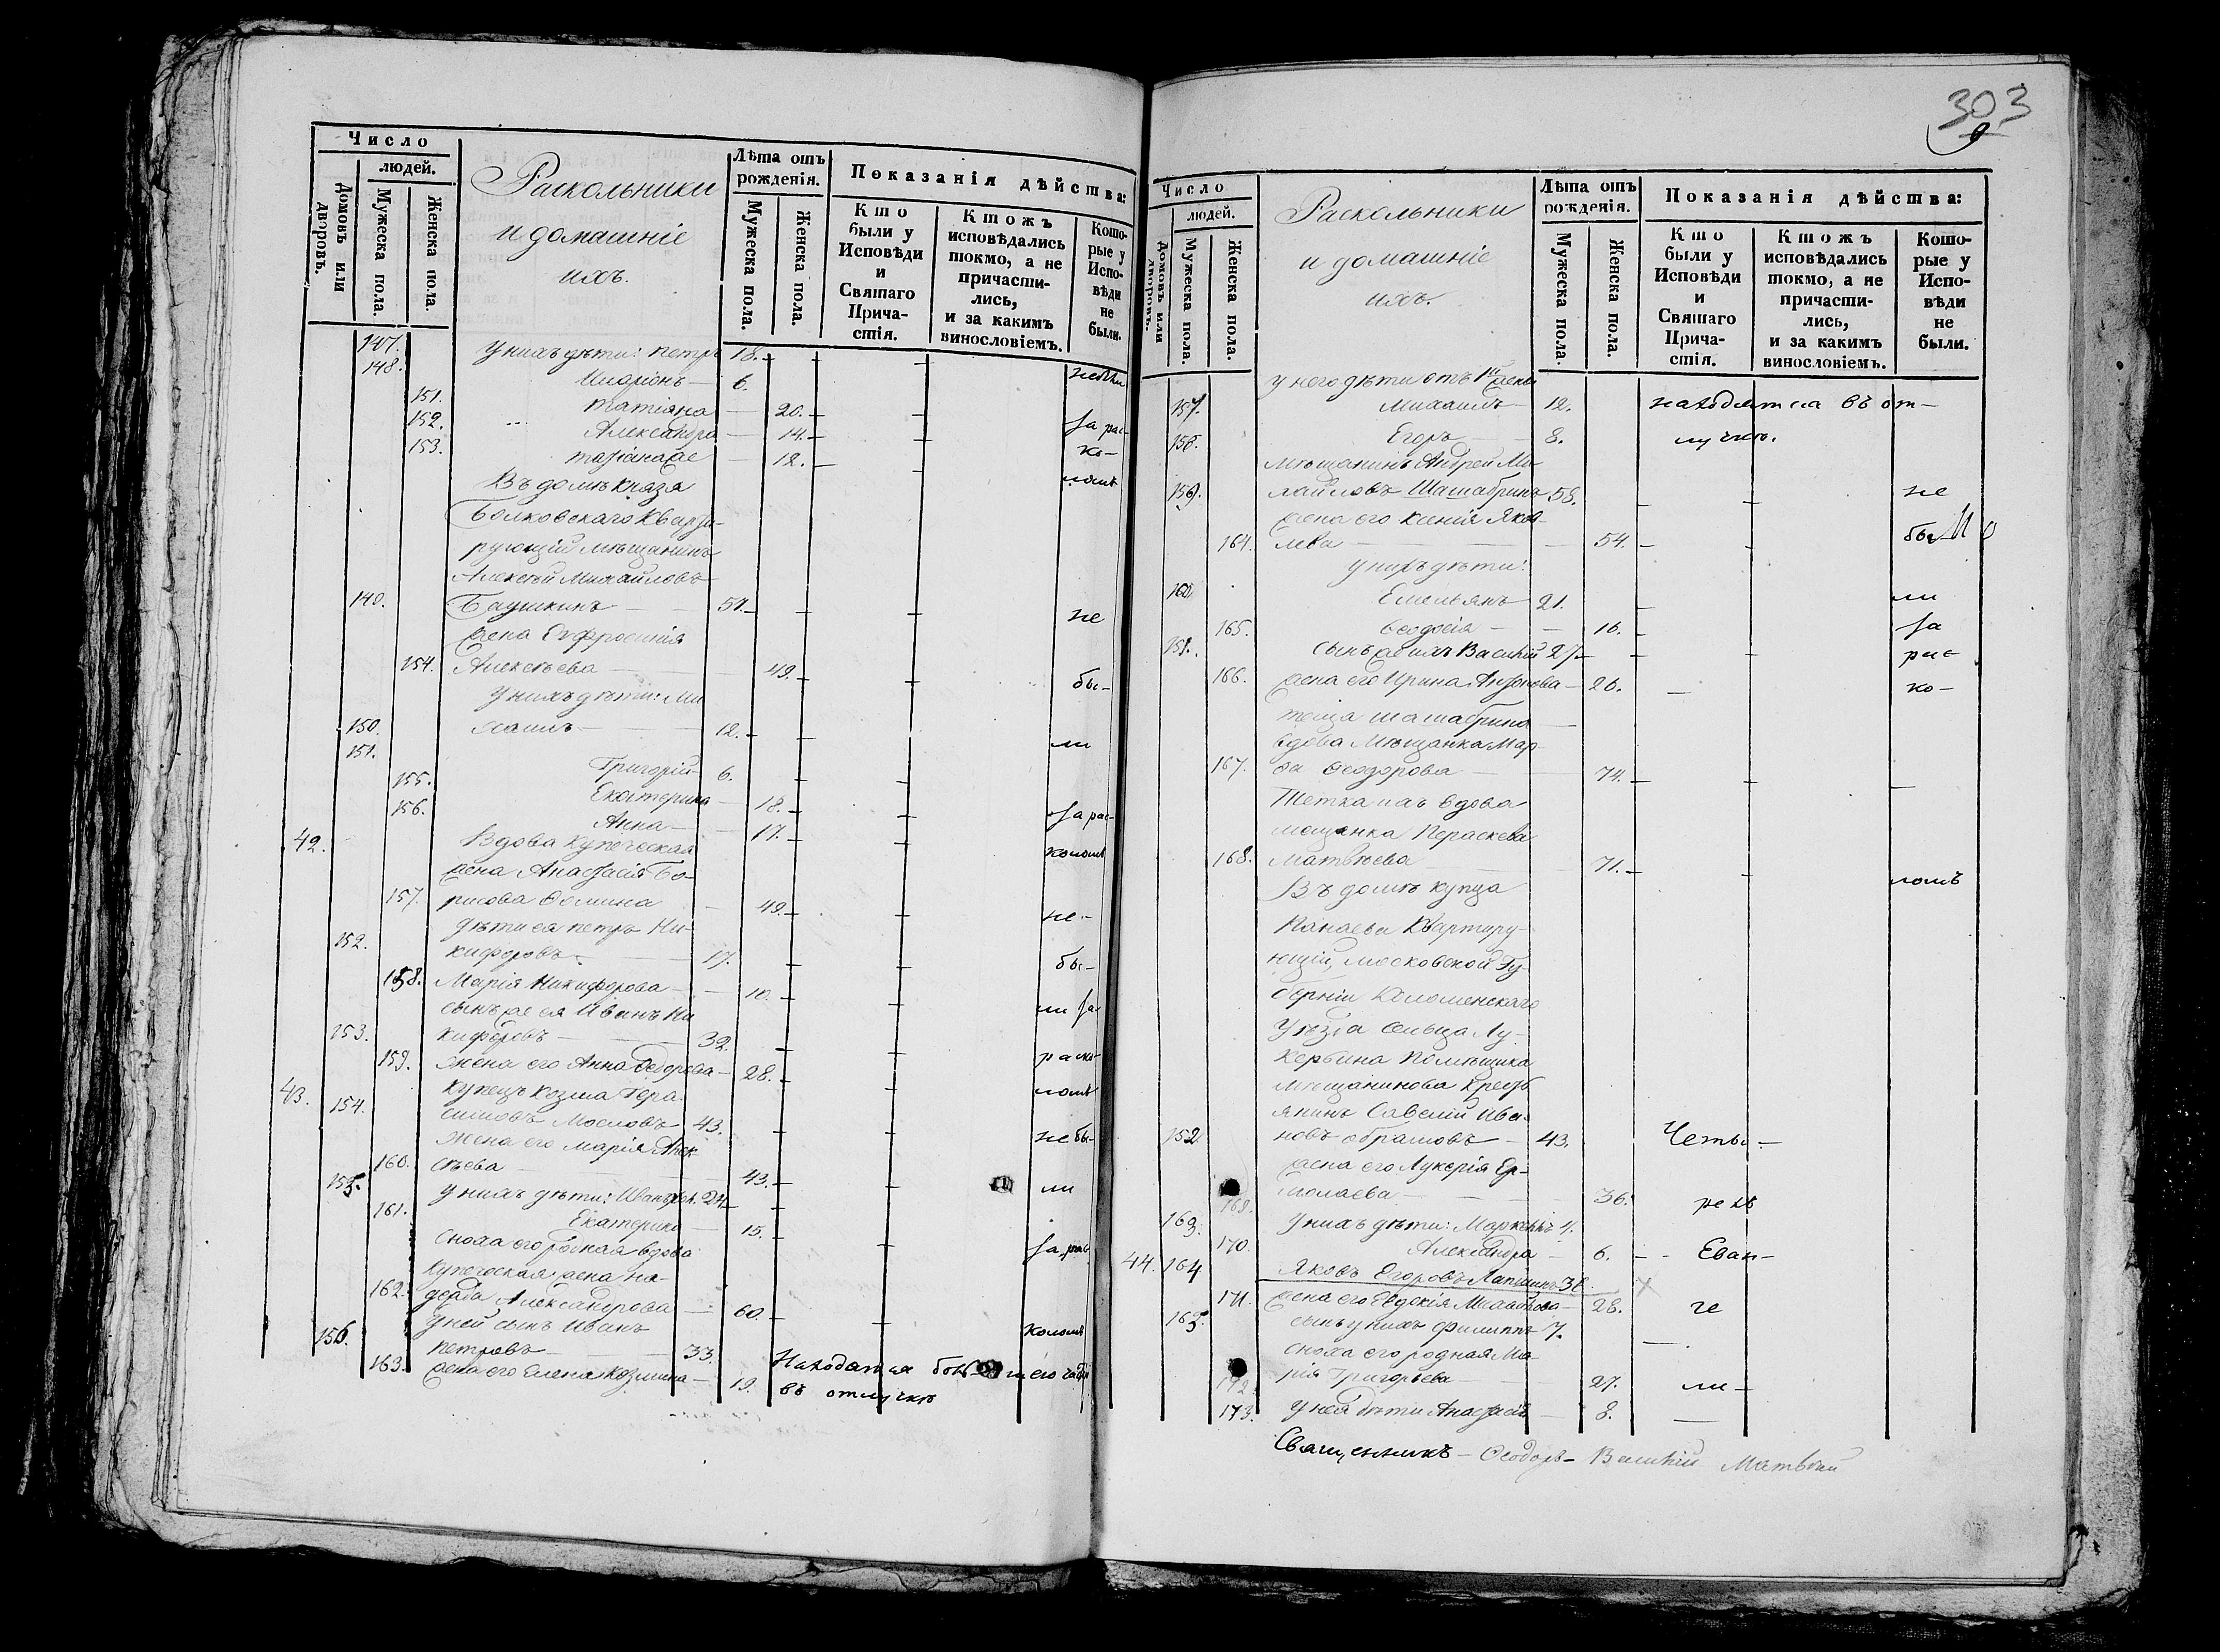 303
Число
людей.
Домовъ или дворовъ.
Мужеска пола.
Женска пола.
Раскольники
и домашніе
ихъ.
Лѣта отъ рожденія.
Мужеска пола.
Женска пола.
Показанія дѣйства:
Кто были у Исповѣди и Святаго Прича-стія.
Ктожъ исповѣдались токмо, а не причасти-лись, и за какимъ винословіемъ.
Кото-рые у Испо-вѣди не были.
147. у нихъ дѣти: Петръ 18.
148. Иларіонъ — 6. небы
151. Татіана — 20.
152. Александра — 14. за рас-
153. 12. ко-
Въ домѣ Князя ломъ
Волковскаго Кварти-
рующій мѣщанинъ
Алексѣй Михайловъ
149. 51. не
жена Евфросинія
154. Алексѣева — 49. бы-
у нихъ дѣти: Ми
150. хаилъ — 12. ли
151. Григорій 6.
155. Екатерина — 18.
156. Анна — 17. за рас-
42. Вдова Купеческая коломъ
жена Анастасія Бо-
157. рисова Ѳомина — 49. не-
дѣти ея Петръ Ни-
152. кифоровъ — 17. бы-
158. Марія Никифорова — 10.
сынъ же ея Иванъ Ни ли за
153. кифоровъ — 32.
159. жена его Анна Ѳедорова — 28. раско
43. Купецъ Козма Гера- ломъ
154. симовъ Мословъ 43.
жена его Марія Алек- не бы-
160. сѣева — 43.
155. у нихъ дѣти: Иванъ 21. ли
161. Екатерина — 15.
сноха его родная вдова за рас
купеческая жена На-
162. дежда Александрова — 60.
у ней сынъ Иванъ коломъ
156. Петровъ — 33.
163. жена его Елена Козмина — 19. Находятся
въ отлучкѣ
Число
людей.
Домовъ или дворовъ.
Мужеска пола.
Женска пола.
Раскольники
и домашніе
ихъ.
Лѣта отъ рожденія.
Мужеска пола.
Женска пола.
Показанія дѣйства:
Кто были у Исповѣди и Святаго Прича-стія.
Ктожъ исповѣдались токмо, а не причасти-лись, и за какимъ винословіемъ.
Кото-рые у Испо-вѣди не были.
у него дѣти отъ 1й жены
157. Михаилъ — 12. находятся въ от-
158. Егоръ — 8. лучкѣ.
мѣщанинъ Андрей Ми-
159. хайловъ Шашабринъ 58. не
жена его Ксенія Яков-
164. лева — 54. бы
у нихъ дѣти:
160 Емельянъ 21. ли
165. Ѳеодосія — 16. за
161. сынъ же ихъ Василій 27 рас-
166. жена его Ирина Антонова — 26. ко-
теща Шашабрина
вдова Мѣщанка Мар-
167. ѳа Ѳеодорова — 74.
Тетка ихъ вдова
мещанка Параскева
168. Матвѣева — 71.
Въ домѣ купца ломъ
Панаева Квартиру-
ющій, Московской Гу-
берніи Коломенскаго
Уѣзда сельца Лу-
Помѣщика
Мѣщанинова крест
янинъ Савелій Ива-
152 новъ Абрамовъ — 43. Четы-
жена его Лукерія Ер-
169. молаева — 36. рехъ
163. у нихъ дѣти: 4.
170. Александра — 6. Еван-
44. 164 Яковъ Егоровъ Лапшинъ 38.
171. жена его Евдокія — 28. ге
165. сынъ у нихъ Филиппъ 7.
сноха его родная Ма-
172 рія Григорьева — 27. ли-
173. у нея дѣти Анастасія — 8.
Священникъ — Ѳеодоръ Василій Матвѣй